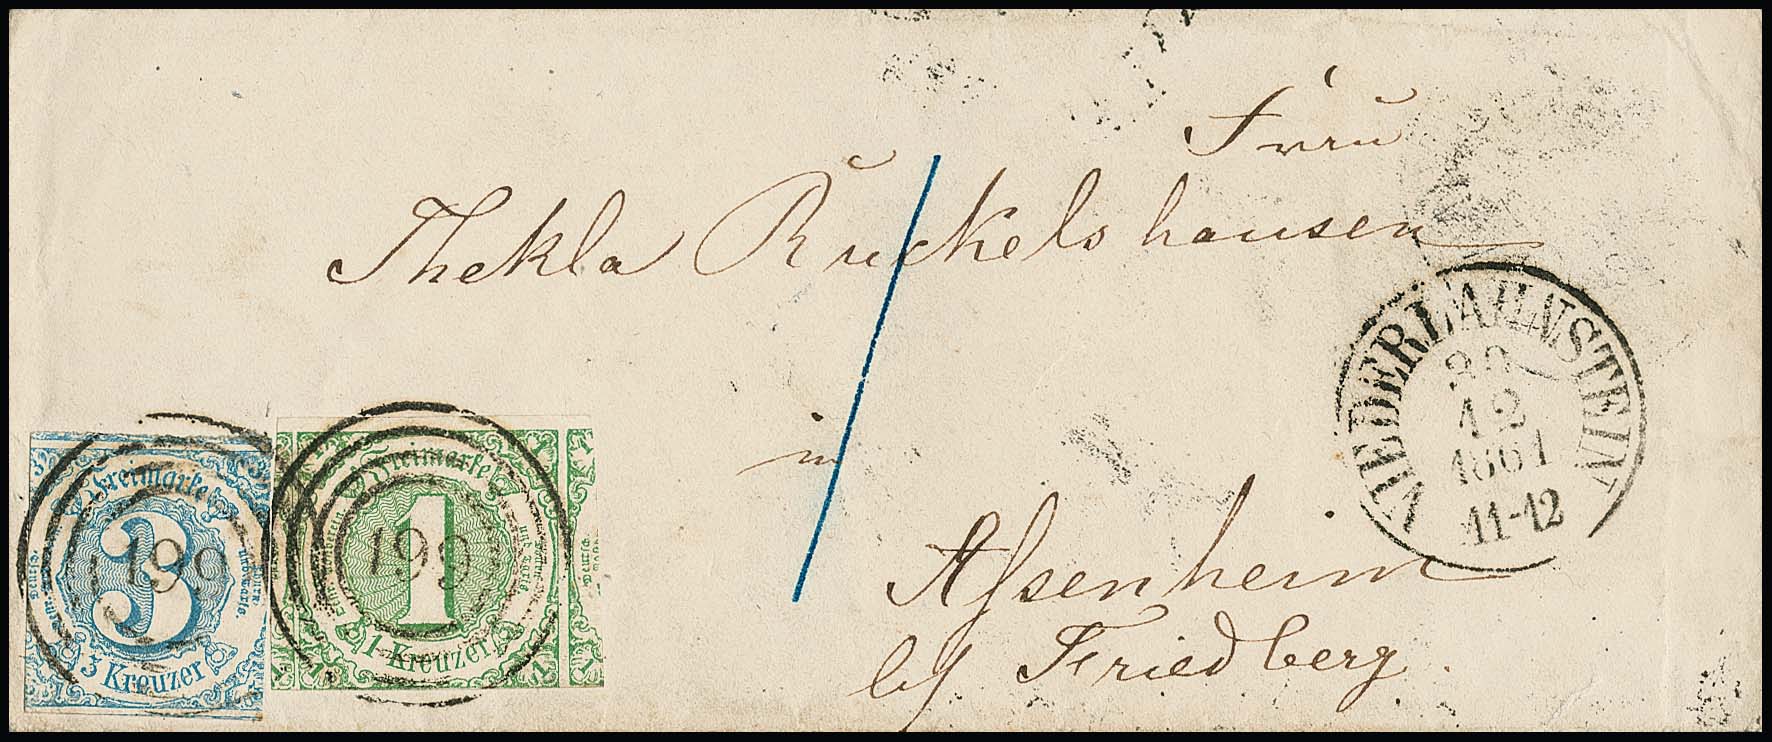 Frau
Thekla Ruckelshausen
in
Assenheim
by Friedberg.
NIEDERLAHNSTEIN
12
1861
11-12
Freimarke
3
3 Kreuzer
199
Freimarke
1
1 Kreuzer
199